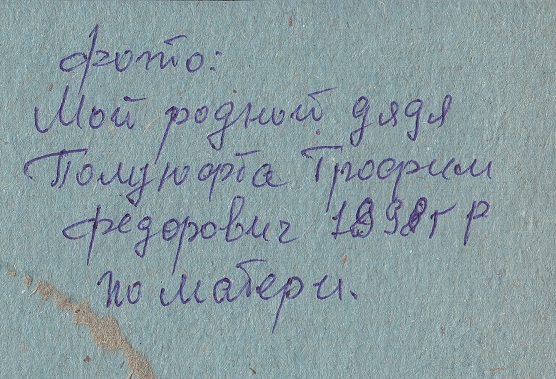 фото:
Мой родной дядя
Полуюфта Трофим
федорович 1898г р
по матери.